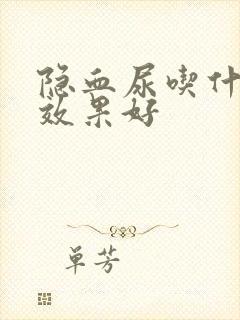 隐血尿喫什
效果好
单芳